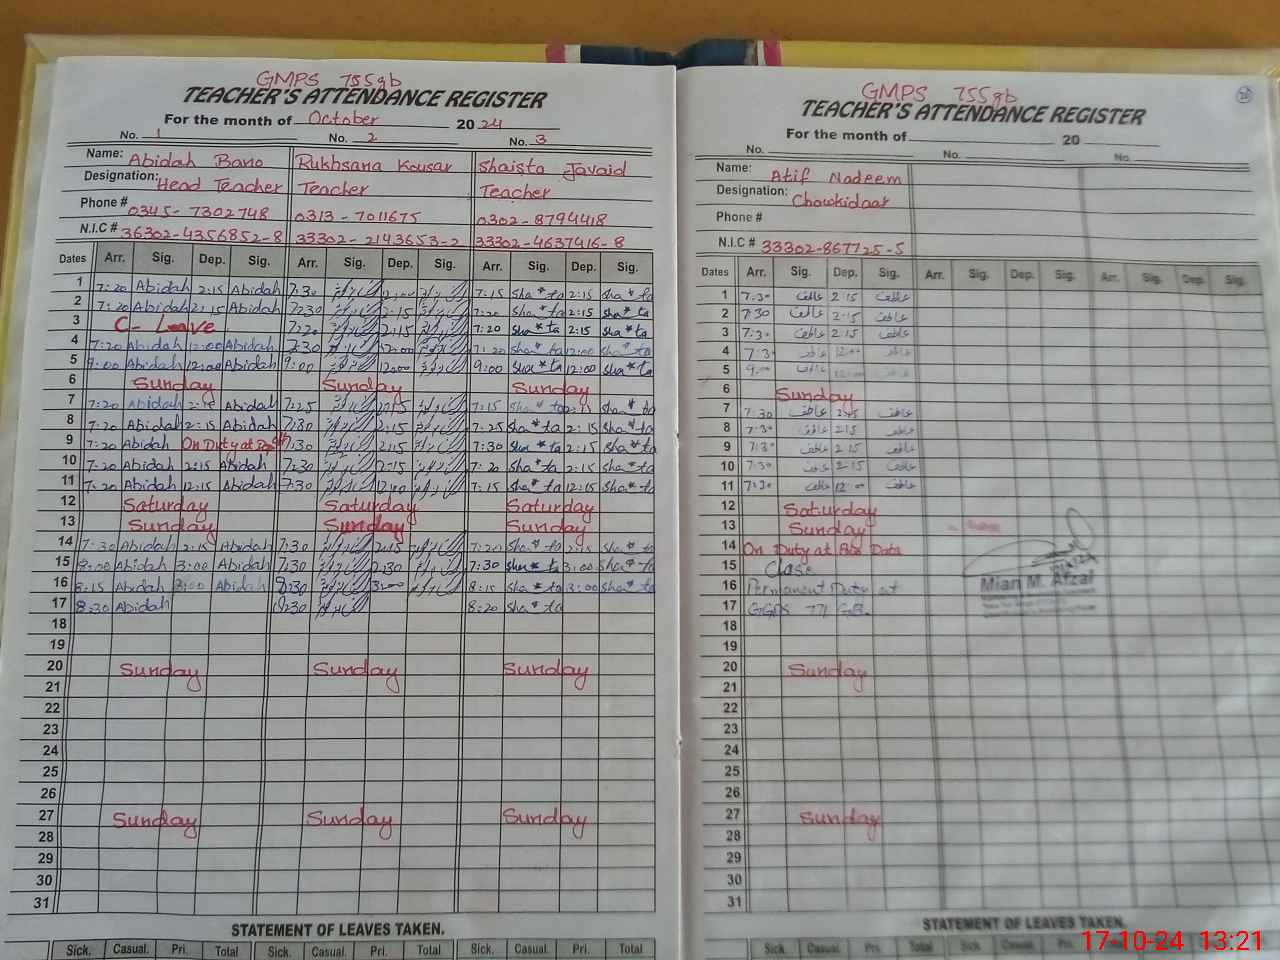 GMPS 755gb
TEACHER'S ATTENDANCE REGISTER
For the month of October 2024
No. 1 No. 2 No. 3
Name: Abidah Bano Rukhsana Kousar Shaista Javaid
Designation: Head Teacher Teacher Teacher
Phone # 0345-7302748 0313-7011675 0302-8794418
N.I.C # 36302-4356852-8 33302-2143653-2 33302-4637416-8
Dates Arr. Sig. Dep. Sig. Arr. Sig. Dep. Sig. Arr. Sig. Dep. Sig.
1 7:20 Abidah 2:15 Abidah 7:30 12:00 7:15 Sha*ta 2:15 Sha*ta
2 7:20 Abidah 2:15 Abidah 7:30 2:15 7:20 Sha*ta 2:15 Sha*ta
3 C-Leave 7:20 2:15 7:20 Sha*ta 2:15 Sha*ta
4 7:20 Abidah 12:00 Abidah 7:30 12:00 7:20 Sha*ta 12:00 Sha*ta
5 9:00 Abidah 12:00 Abidah 9:00 12:00 9:00 Sha*ta 12:00 Sha*ta
6 Sunday Sunday Sunday
7 7:20 Abidah 2:15 Abidah 7:25 2:15 7:15 Sha*ta 2:15 Sha*ta
8 7:20 Abidah 2:15 Abidah 7:30 2:15 7:25 Sha*ta 2:15 Sha*ta
9 7:20 Abidah On Duty at 7:30 2:15 7:30 Sha*ta 2:15 Sha*ta
10 7:20 Abidah 2:15 Abidah 7:30 2:15 7:20 Sha*ta 2:15 Sha*ta
11 7:20 Abidah 12:15 Abidah 7:30 12:00 7:15 Sha*ta 12:15 Sha*ta
12 Saturday Saturday Saturday
13 Sunday Sunday Sunday
14 7:30 Abidah 2:15 Abidah 7:30 2:15 7:20 Sha*ta 2:15 Sha*ta
15 8:00 Abidah 3:00 Abidah 7:30 2:30 7:30 Sha*ta 3:00 Sha*ta
16 8:15 Abidah 3:00 Abidah 8:30 3:00 8:15 Sha*ta 3:00 Sha*ta
17 8:30 Abidah 8:30 8:20 Sha*ta
18
19
20 Sunday Sunday Sunday
21
22
23
24
25
26
27 Sunday Sunday Sunday
28
29
30
31
STATEMENT OF LEAVES TAKEN.
Sick. Casual. Pri. Total Sick. Casual. Pri. Total Sick. Casual. Pri. Total
GMPS 755gb
TEACHER'S ATTENDANCE REGISTER
For the month of 20
No. No. No.
Name: Atif Nadeem
Designation: Chowkidaar
Phone #
N.I.C # 33302-867725-5
Dates Arr. Sig. Dep. Sig. Arr. Sig. Dep. Sig. Arr. Sig. Dep. Sig.
1 7:30 عاطف 2:15 عاطف
2 7:30 عاطف 2:15 عاطف
3 7:30 عاطف 2:15 عاطف
4 7:30 عاطف 12:00 عاطف
5 9:00 عاطف 12:00 عاطف
6 Sunday
7 7:30 عاطف 2:15 عاطف
8 7:30 عاطف 2:15 عاطف
9 7:30 عاطف 2:15 عاطف
10 7:30 عاطف 2:15 عاطف
11 7:30 عاطف 12:00 عاطف
12 Saturday
13 Sunday
14 On Duty at Data
15
16 Permanent Duty at
17 GGPS 771 GB
Mian M. Afzal
18
19
20 Sunday
21
22
23
24
25
26
27 Sunday
28
29
30
31
STATEMENT OF LEAVES TAKEN.
Sick. Casual. Pri. Total Sick. Casual. Pri. Total Sick. Casual. Pri. Total
17-10-24 13:21